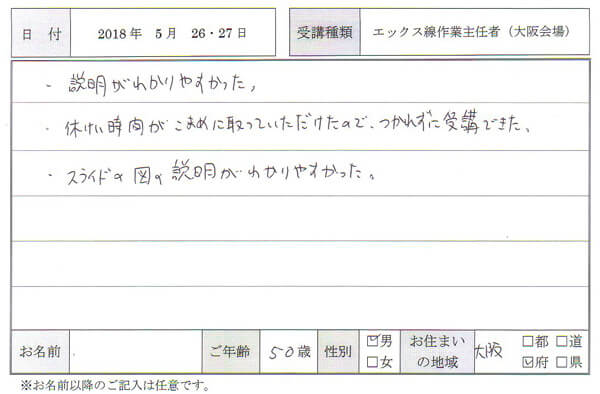 日 付 2018年 5月 26・27日 受講種類 エックス線作業主任者（大阪会場）
・説明がわかりやすかった。
・休けい時間がこまめに取っていただけたので、つかれずに受講できた。
・スライドの図の説明がわかりやすかった。
お名前 ご年齢 50歳 性別 ☑男 □女 お住まいの地域 大阪 □都 □道 ☑府 □県
※お名前以降のご記入は任意です。